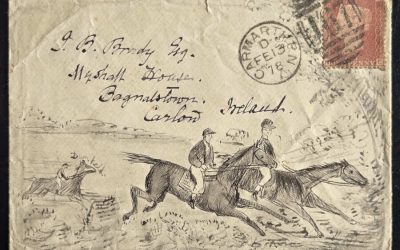 J. B. Brady Esq.
Myshall House.
Bagnalstown.
Carlow Ireland.
CARMARTHEN
D
FE 13
78